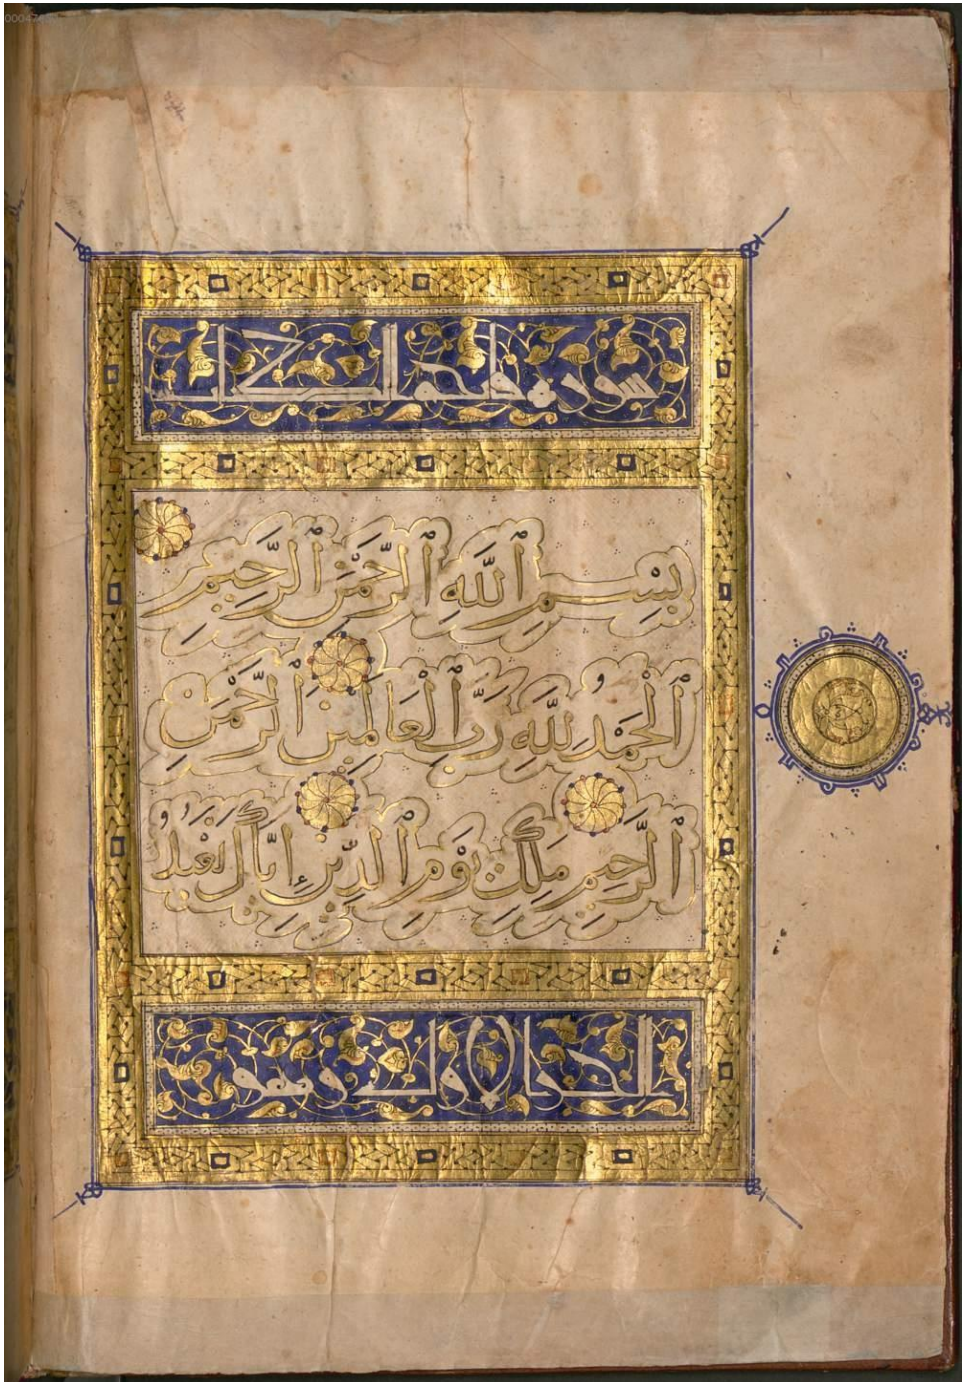 سورة فاتحة الكتاب
بِسْمِ ٱللَّهِ ٱلرَّحْمَٰنِ ٱلرَّحِيمِ
ٱلْحَمْدُ لِلَّهِ رَبِّ ٱلْعَالَمِينَ ٱلرَّحْمَٰنِ
ٱلرَّحِيمِ مَلِكِ يَوْمِ ٱلدِّينِ إِيَّاكَ نَعْبُدُ وَ